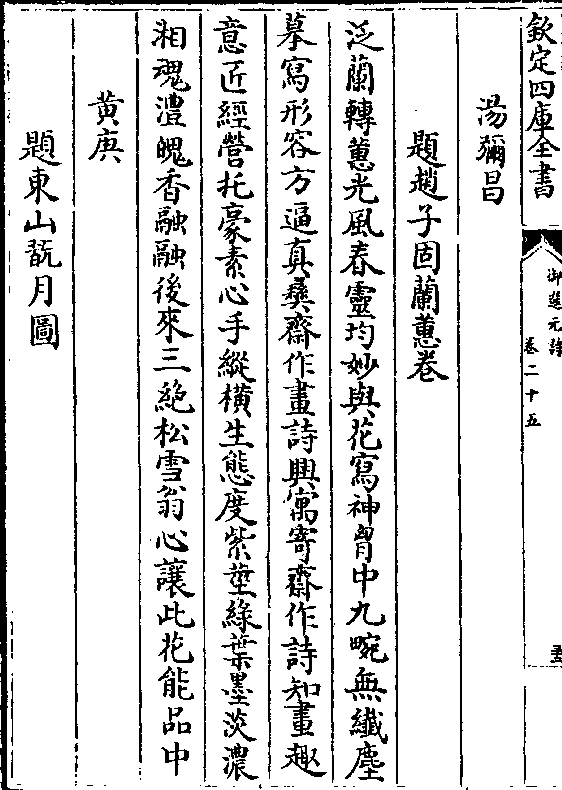 欽定四庫全書
御選元詩
卷二十五
湯彌昌
題趙子固蘭蕙卷
泛蘭轉蕙光風春靈均妙與花寫神胷中九畹無纖塵
摹寫形容方逼真彝齋作畫詩興寓寄齋作詩知畫趣
意匠經營托豪素心手縱横生態度紫莖綠葉墨淡濃
湘魂澧魄香融融後來三絶松雪翁心讓此花能品中
黄庚
題東山翫月圖